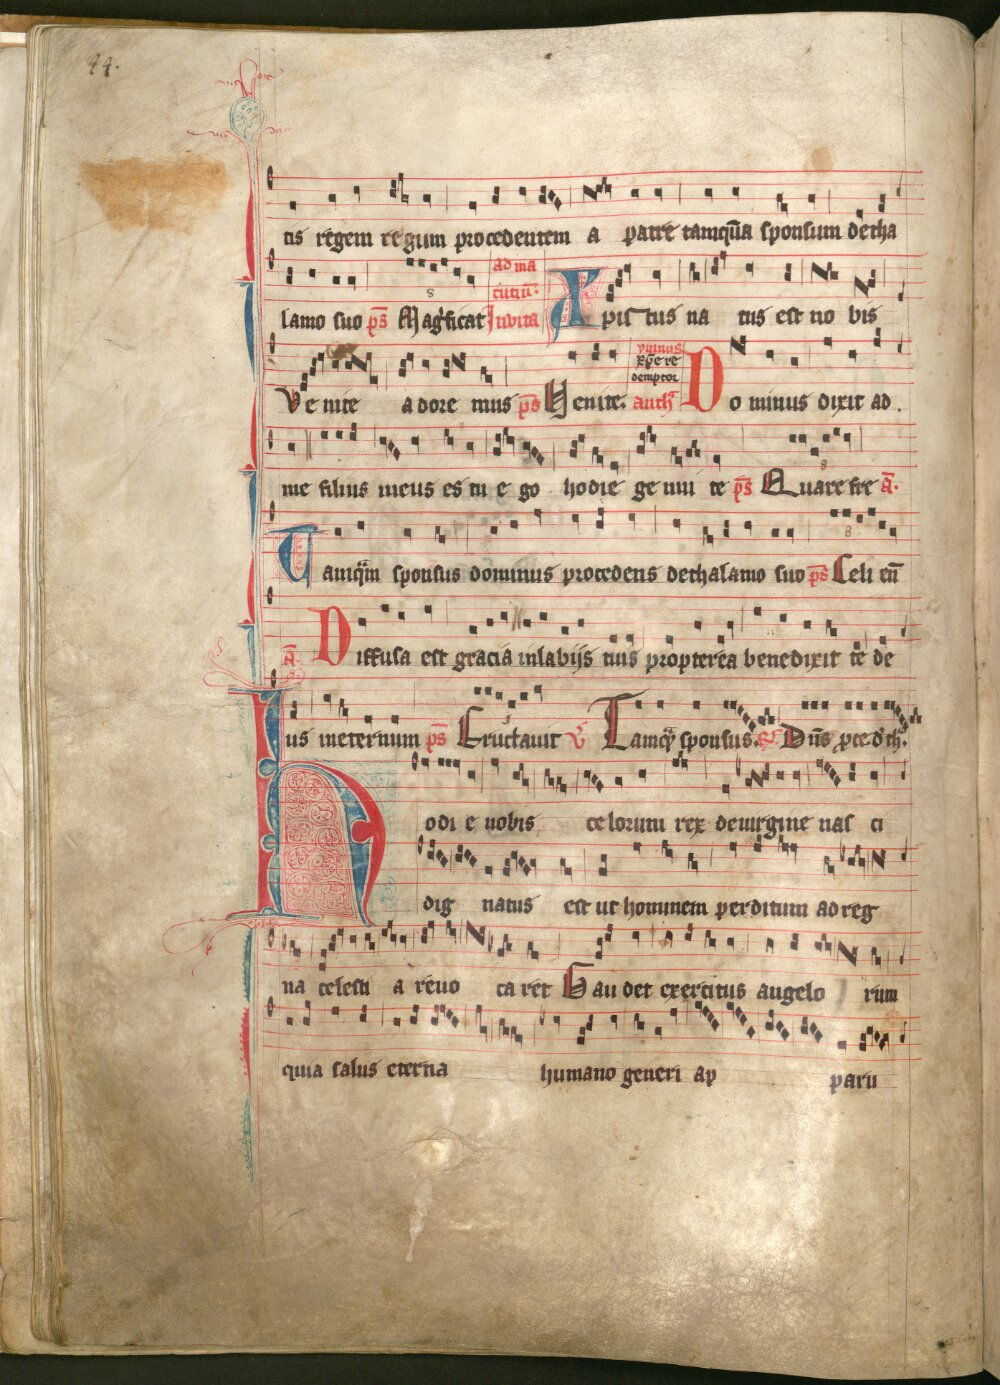 44.
tis regem regum procedentem a patre tamqua sponsum de tha
lamo suo ps Magficat ad ma
tutiu
Invita Xpistus na tus est no bis
Ve nite adore mus ps Venite. ymnus
xpe re
demptor
anth Dominus dixit ad
me filius meus es tu e go hodie ge nui te ps Quare fre a.
Tamqm sponsus dominus procedens dethalamo suo ps Celi en
a. Diffusa est gracia inlabijs tuis propterea benedixit te de
us ineternum ps Eructavit v Tamq sponsus. Dns pce d th.
Hodi e nobis celorum rex devirgine nas ci
dig natus est ut hominem perditum ad reg
na celesti a revo ca ret Gau det exercitus angelo rum
quia salus eterna humano generi ap paru